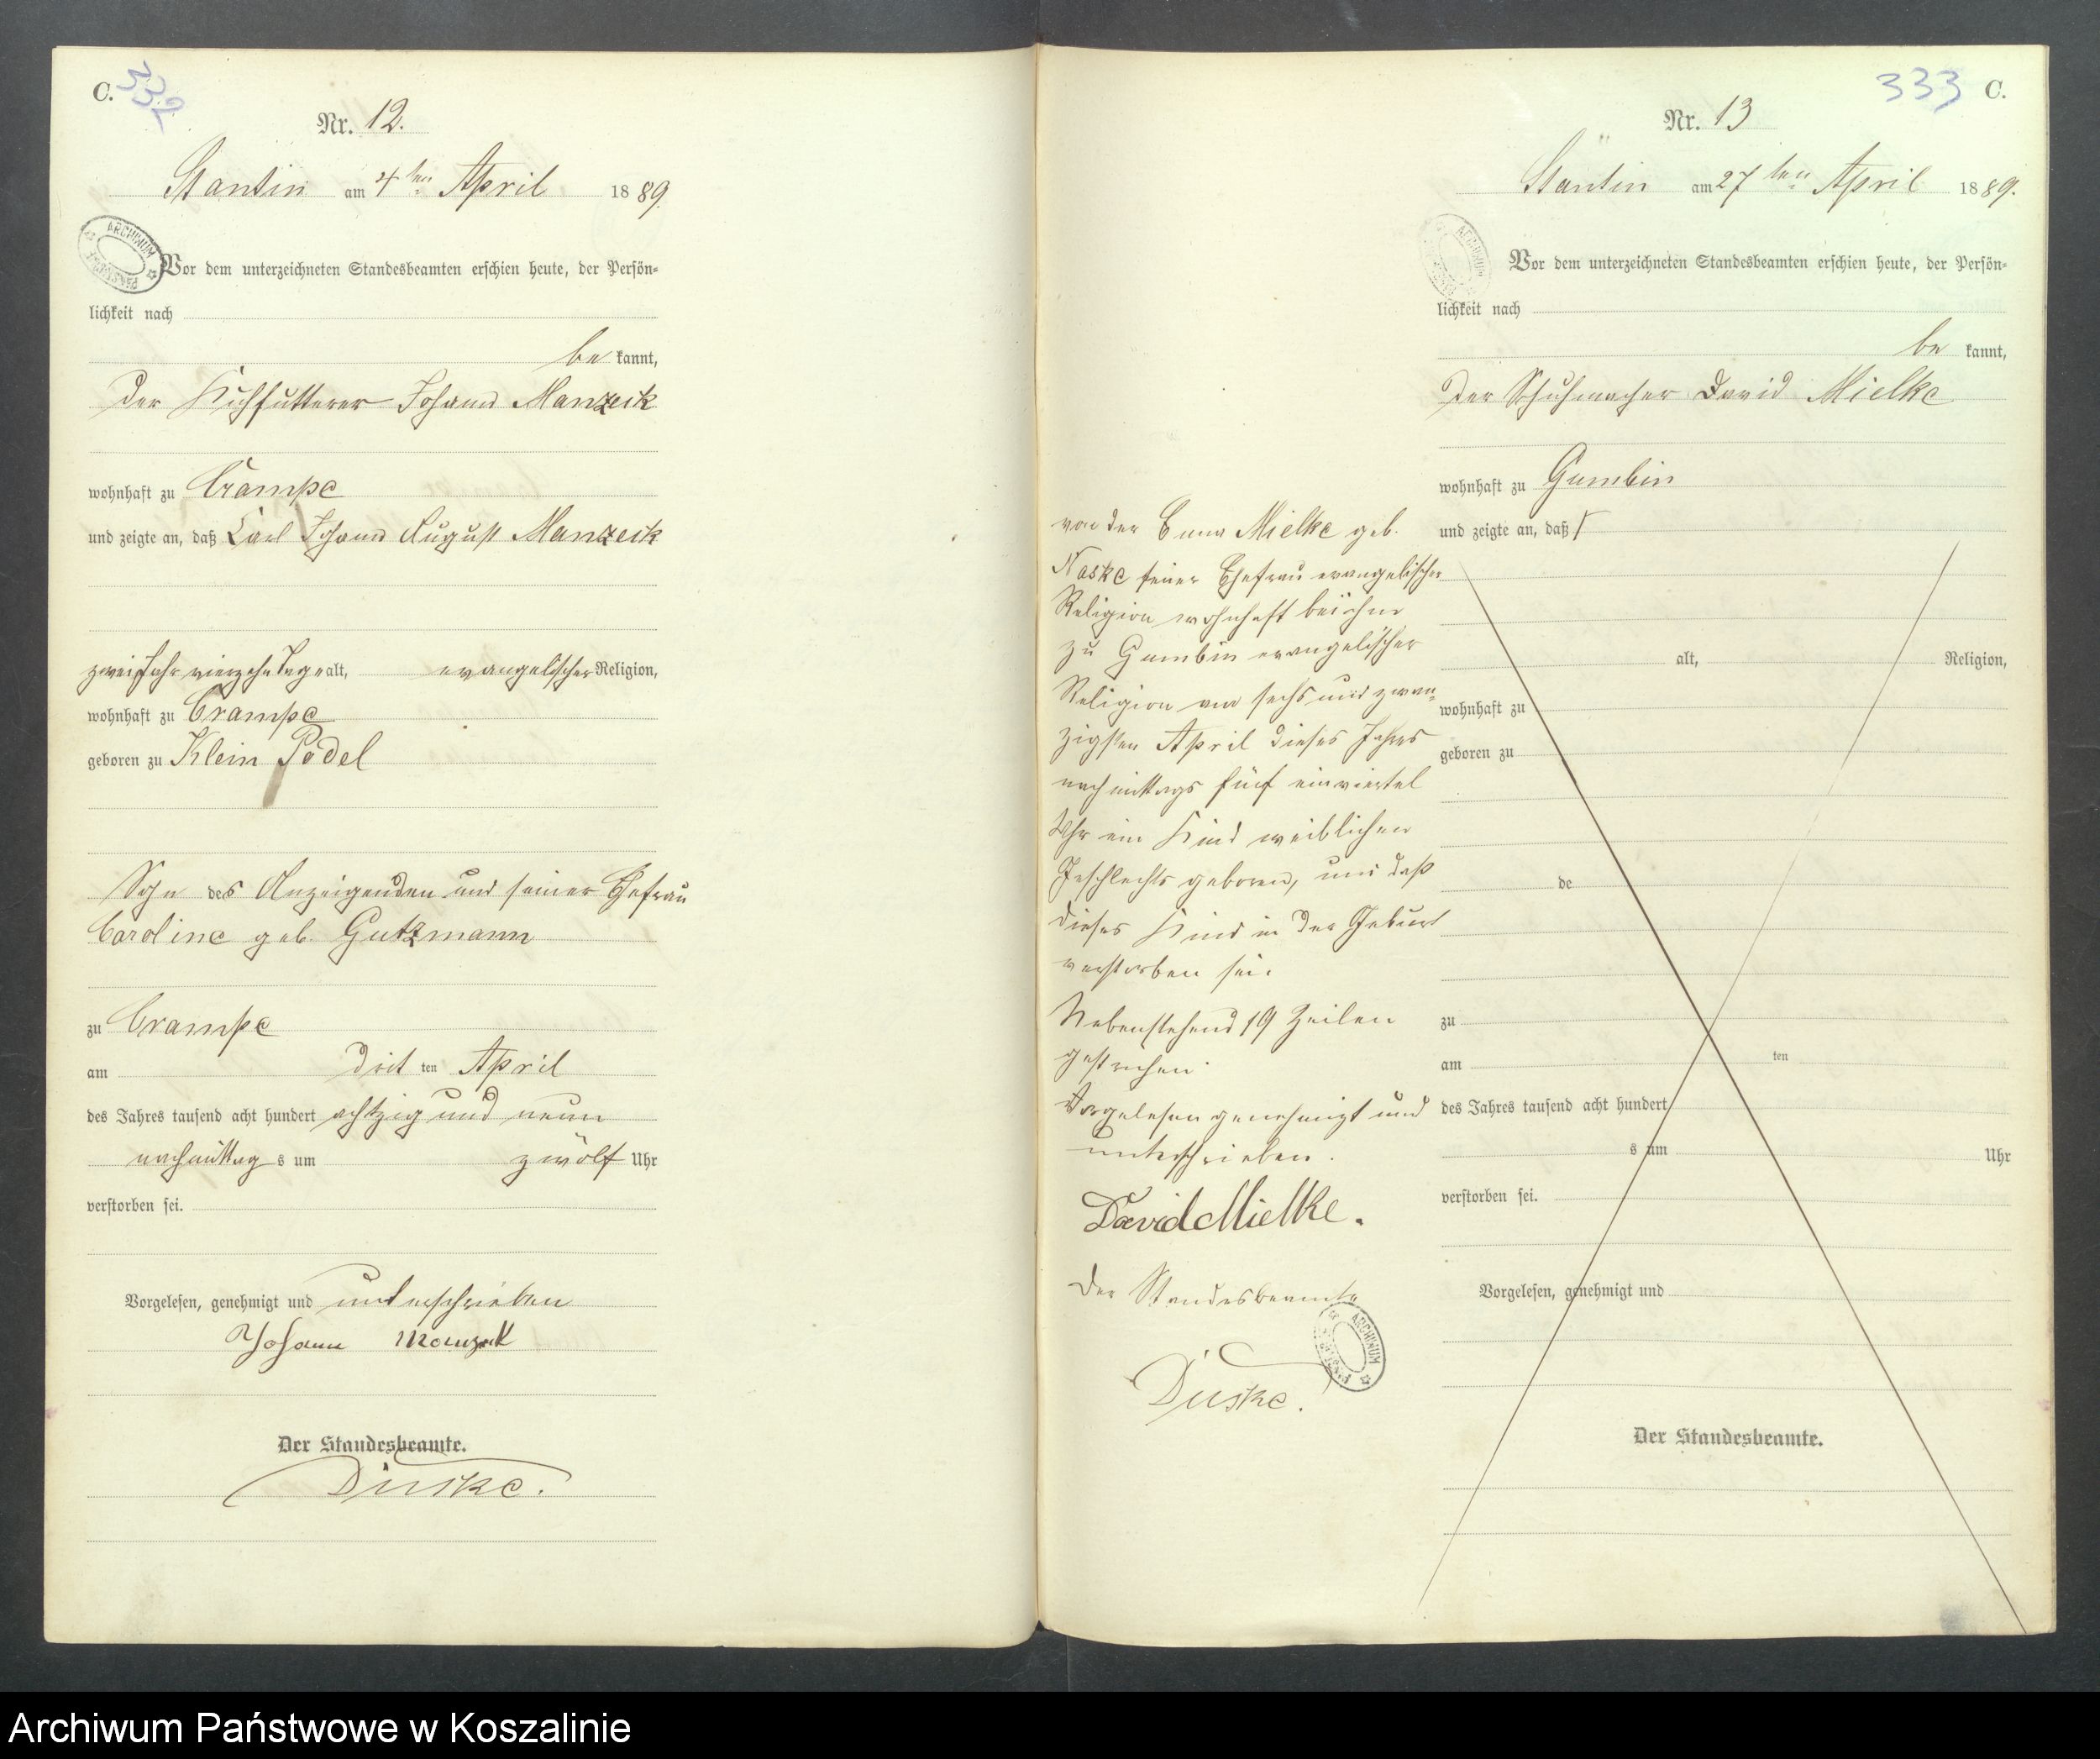 C.
332
Nr. 12.
Stantin am 4ten April 1889.
Vor dem unterzeichneten Standesbeamten erschien heute, der Persön-
lichkeit nach
be kannt,
der Kuhfutterer Johann Manzeck
wohnhaft zu Crampe
und zeigte an, daß Carl Johann August Manzeck
zwei Jahr vierzehn Tage alt, evangelischer Religion,
wohnhaft zu Crampe
geboren zu Klein Podel
Sohn des Anzeigenden und seiner Ehefrau
Caroline geb. Gutzmann
zu Crampe
am dritten April
des Jahres tausend acht hundert achtzig und neun
nachmittags um zwölf Uhr
verstorben sei.
Vorgelesen, genehmigt und unterschrieben
Johann Manzek
Der Standesbeamte.
Duske.
333
C.
Nr. 13
Stantin am 27ten April 1889.
Vor dem unterzeichneten Standesbeamten erschien heute, der Persön-
lichkeit nach
be kannt,
der Schuhmacher David Mielke
wohnhaft zu Gumbin
und zeigte an, daß
alt, Religion,
wohnhaft zu
geboren zu
de
zu
am ten
des Jahres tausend acht hundert
s um Uhr
verstorben sei.
Vorgelesen, genehmigt und
Der Standesbeamte.
von der Mielke geb.
Naske seiner Ehefrau evangelischer
Religion wohnhaft bei ihm
zu Gumbin evangelischer
Religion am sechs und zwan-
zigsten April dieses Jahres
nachmittags fünf einviertel
Uhr ein Kind weiblichen
Geschlechts geboren, und daß
dieses Kind in der Geburt
verstorben sei.
Nebenstehend 19 Zeilen
gestrichen.
Vorgelesen genehmigt und
unterschrieben.
David Mielke.
Der Standesbeamte
Duske.
Archiwum Państwowe w Koszalinie